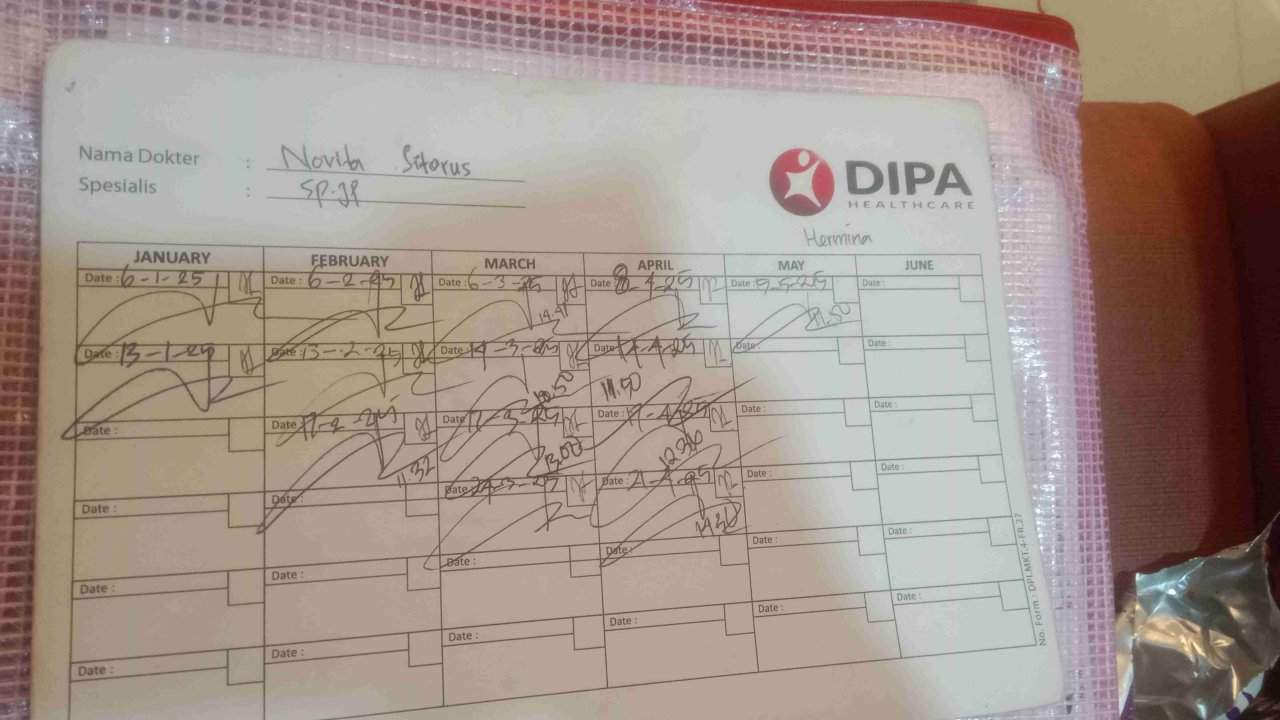 Nama Dokter : Novita Sitorus
Spesialis : SP.JP
DIPA
HEALTHCARE
Hermina
JANUARY FEBRUARY MARCH APRIL MAY JUNE
Date : 6-1-25 Date : 6-2-25 Date : 6-3-25 Date : 8-4-25 Date : 5-5-25 Date :
11.50
Date : 13-1-25 Date : 13-2-25 Date : 14-3-25 Date : 14-4-25 Date : Date :
11.50
Date : Date : 17-2-25 Date : 17-3-25 Date : 17-4-25 Date : Date :
11.32
Date : Date : Date : 24-3-25 Date : 21-4-25 Date : Date :
Date : Date : Date : Date : Date : Date :
Date : Date : Date : Date : Date : Date :
No. Form : DPLMKT.4-FR.27